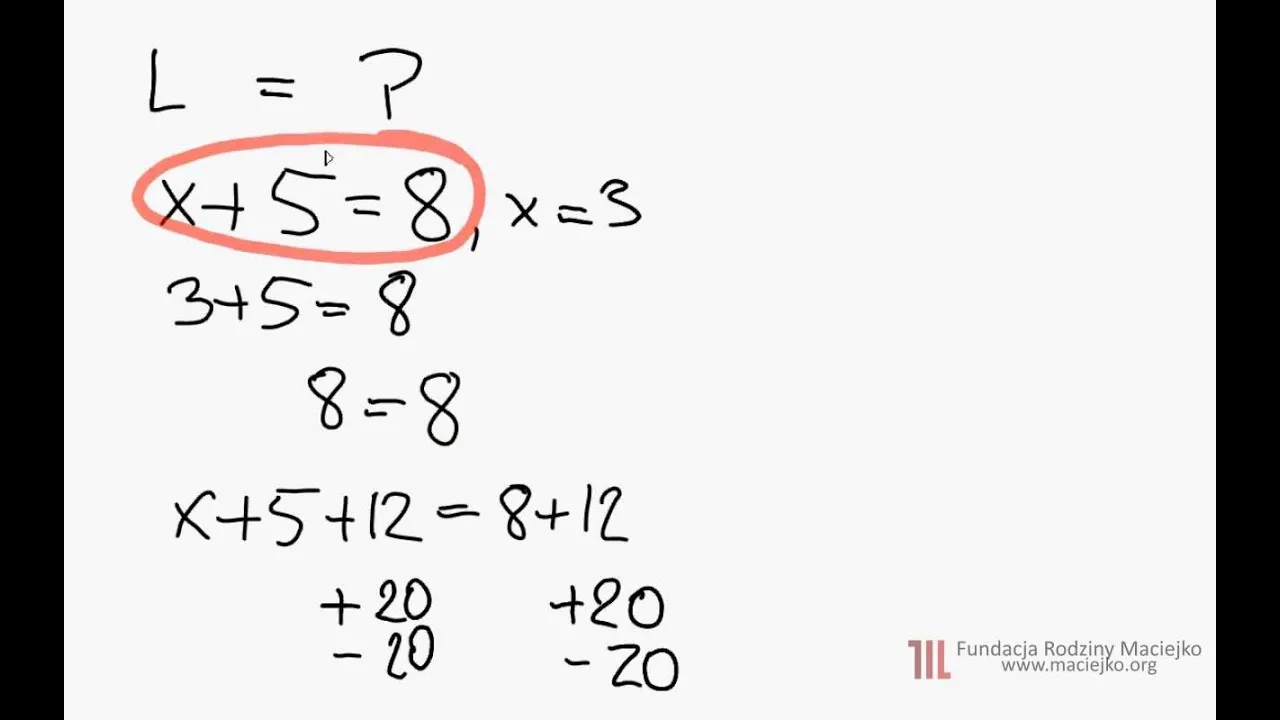 L = ?
x+5=8, x=3
3+5=8
8=8
x+5+12=8+12
+20 +20
-20 -20
Fundacja Rodziny Maciejko
www.maciejko.org